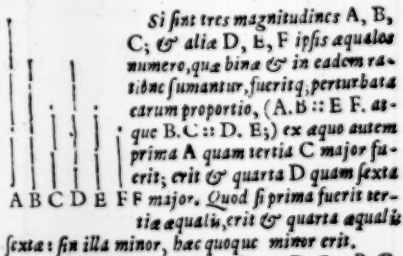 Si ſint tres magnitudines A, B,
C; & aliæ D, E, F ipſis æquales
numero, quæ binæ & in eadem ra-
tione ſumantur, fueritq, perturbata
earum proportio, (A. B :: E F. at-
que B. C :: D. E;) ex æquo autem
prima A quam tertia C major fu-
erit; erit & quarta D quam ſexta
A B C D E F F major. Quod ſi prima fuerit ter-
tiæ æqualis, erit & quarta æqualis
ſextæ: ſin illa minor, hæc quoque minor erit.